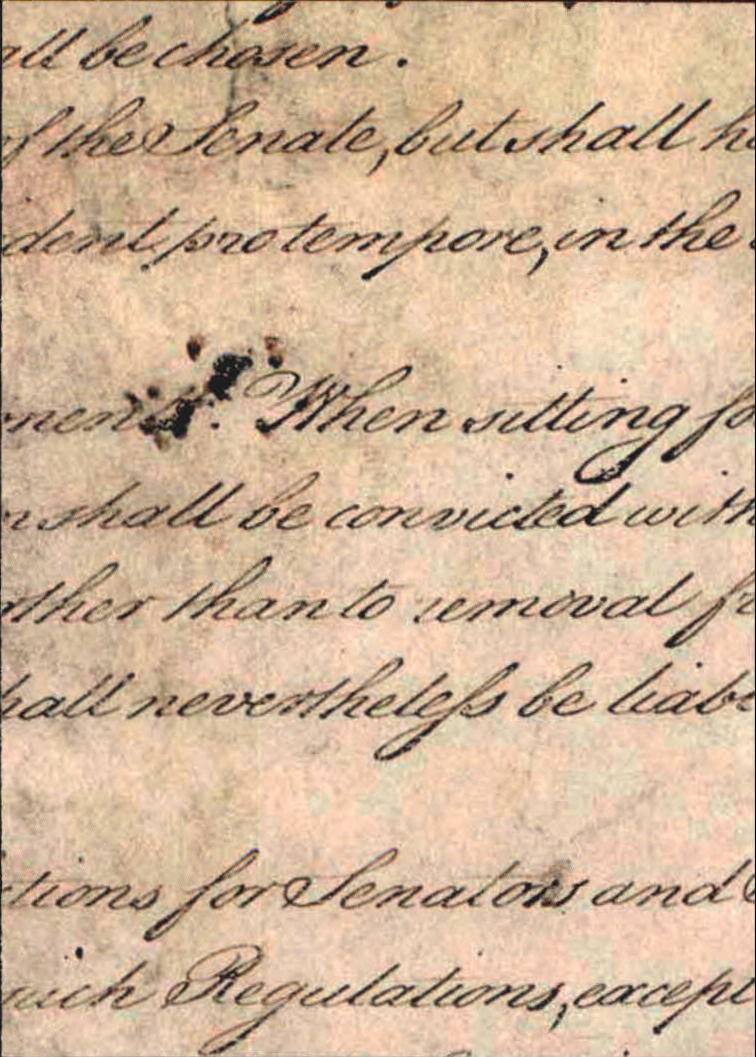 all be chosen.
of the Senate, but shall ha
ident pro tempore, in the
ments. When sitting fo
n shall be convicted with
other than to removal fr
hall nevertheleſs be liab
ctions for Senators and
such Regulations, except